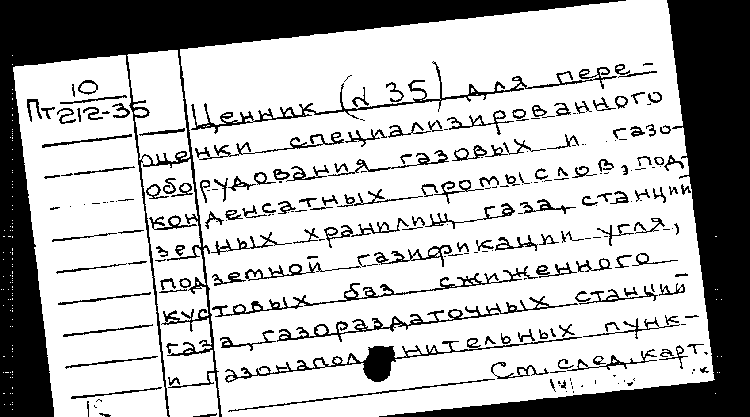 10
Пт212-35
Ценник (№ 35) для пере-
оценки специализированного
оборудования газовых и газо-
конденсатных промыслов, под-
земных хранилищ газа, станций
подземной газификации угля,
кустовых баз сжиженного
газа, газораздаточных станций
и газонаполнительных пунк-
См. след. карт.